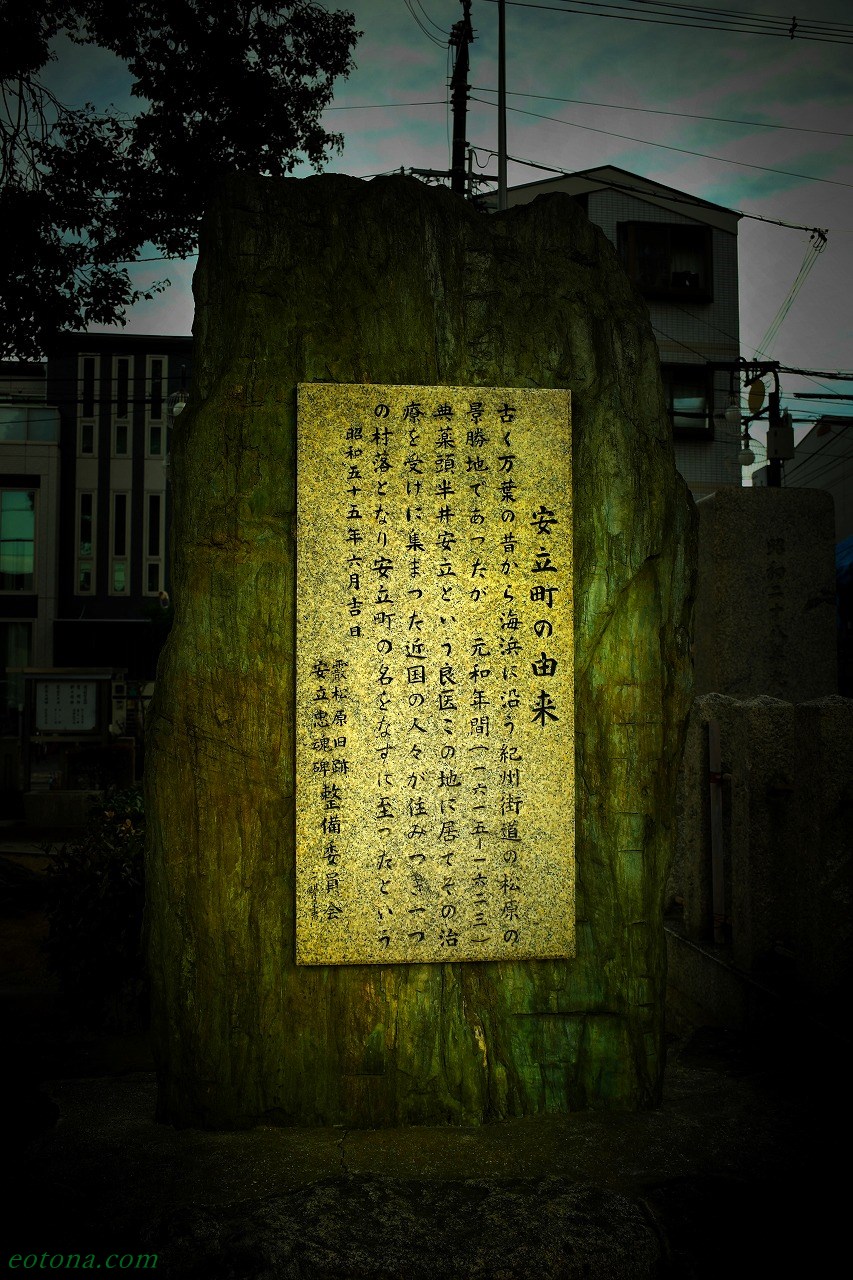 安立町の由来
古く万葉の昔から海浜に沿う紀州街道の松原の
景勝地であったが 元和年間(一六一五ー一六二三)
典薬頭半井安立という良医この地に居てその治
療を受けに集まった近国の人々が住みつき一つ
の村落となり安立町の名をなすに至ったという
昭和五十五年六月吉日
霰松原旧跡
安立忠魂碑整備委員会
昭和二十八
eotona.com